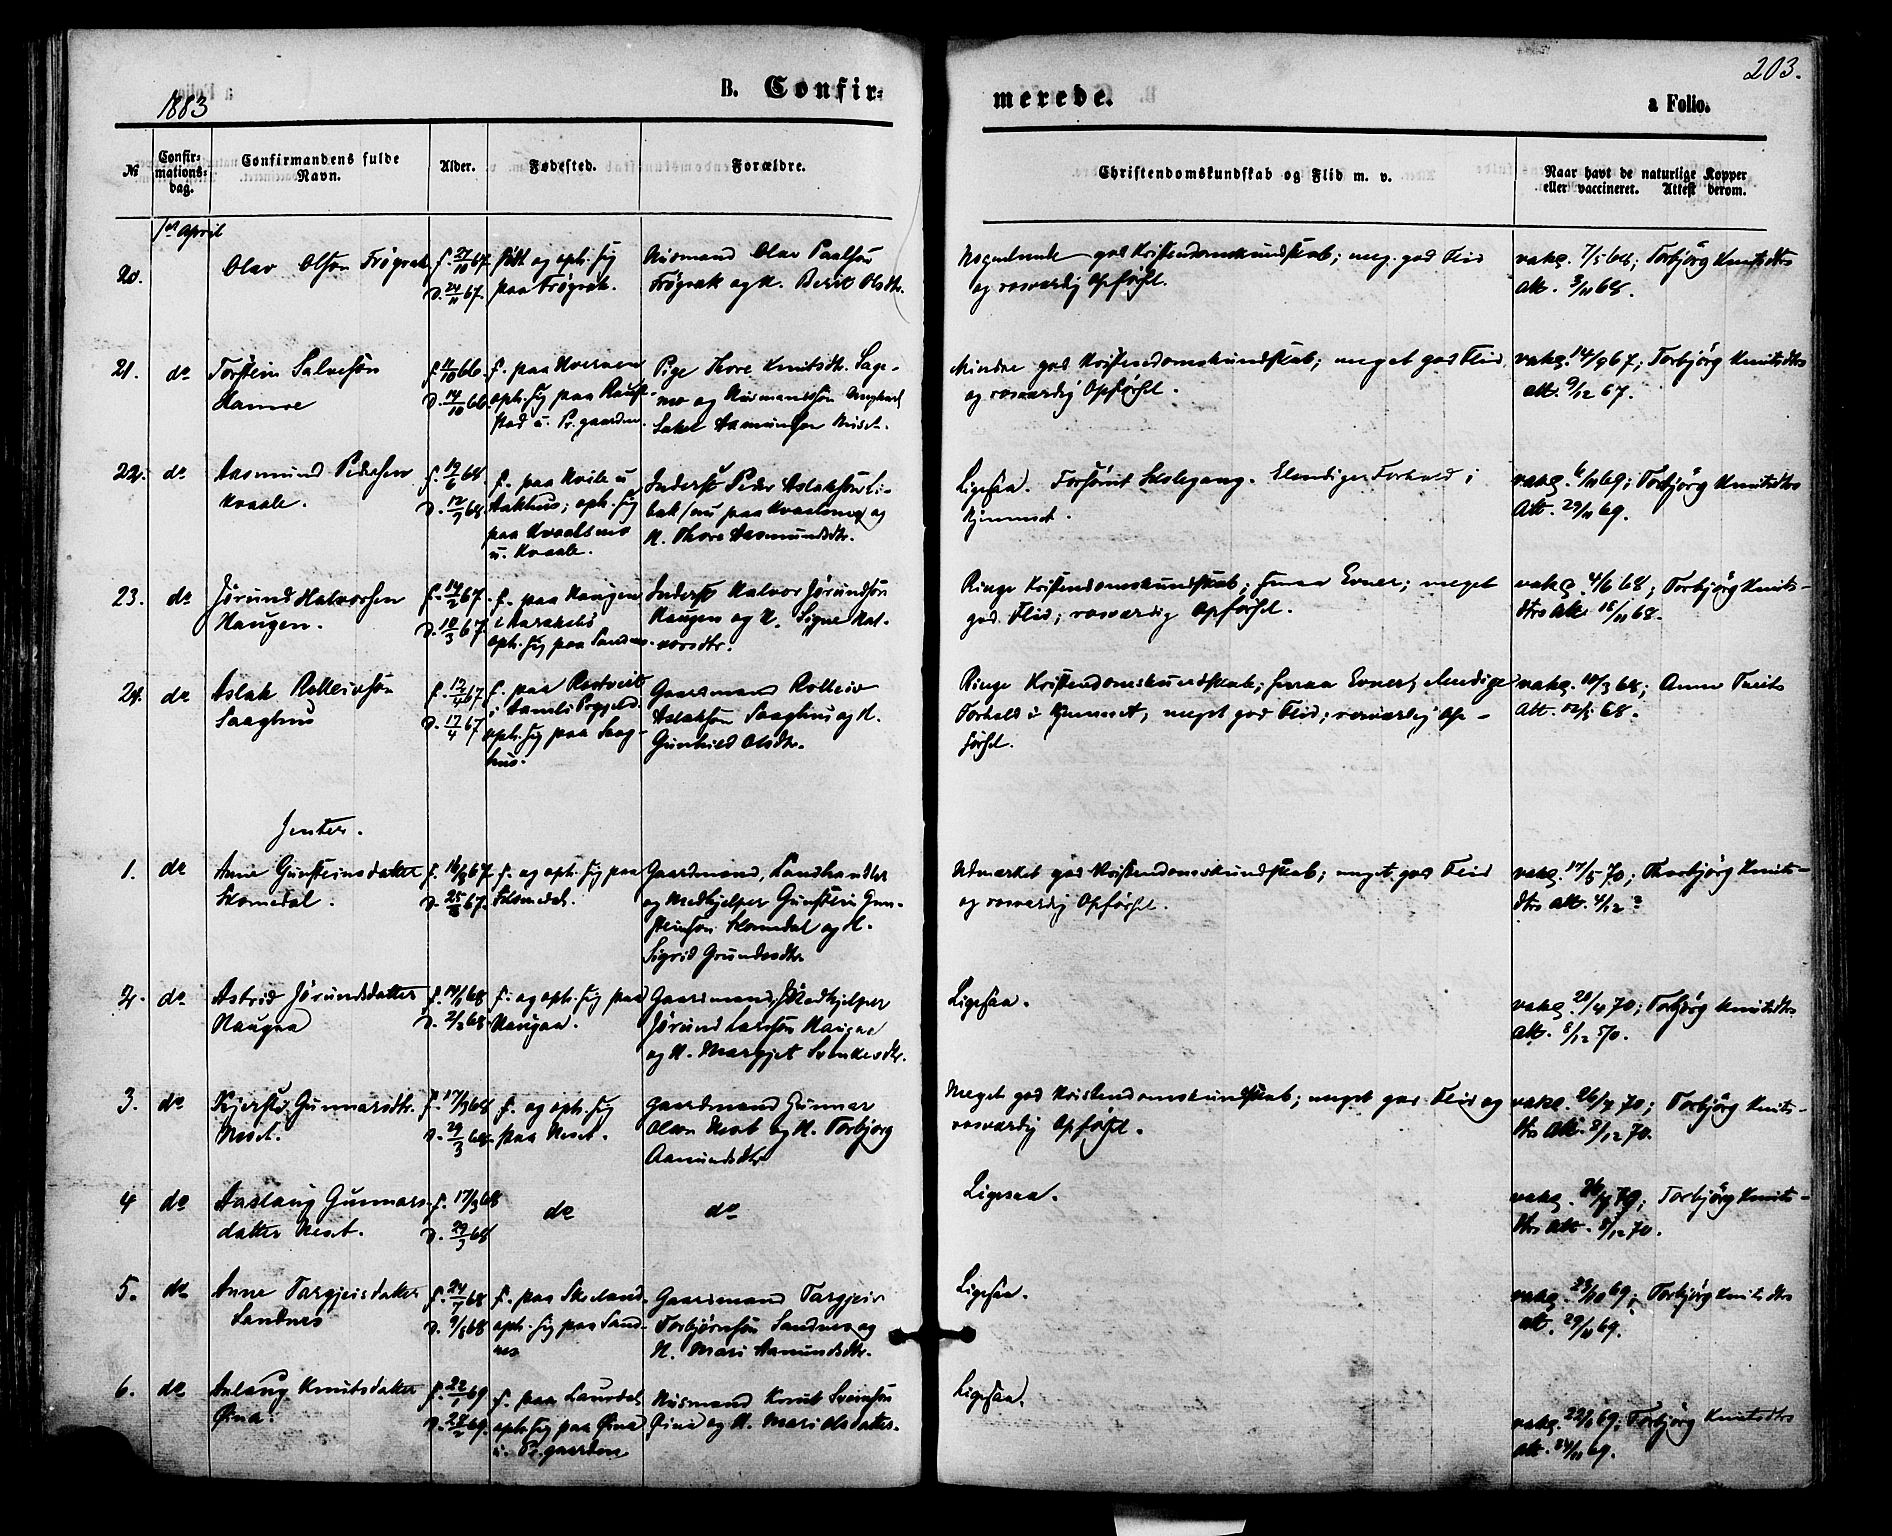 1883
B. Confir-
merede.
203.
a Folio.
№
Confir-
mations-
dag.
Confirmandens fulde
Navn.
Alder.
Fødested.
Forældre.
Christendomskundskab og Flid m. v.
Naar havt de naturlige Kopper
eller vaccineret. Attest derom.
1ste April
20.
Olav Olsøn Frøgnak
f. 27/10 67.
D. 24/11 67.
født og oph. sig
paa Frøgnak.
Husmand Olav Paalsøn
Frøgnak og H. Berit Olsdtr.
Nogenlunde god Kristendomskundskab; meg. god Flid
og rosværdig Opførsel.
vakc. 7/5 68; Torbjörg Knutsdtrs
Att. 3/11 68.
21.
do
Torstein Salvesøn
Hamre
D. 14/10 66.
oph. sig paa
u. Pr. gaarden.
Pige Thore Knutsdtr.
Mindre god Kristendomskundskab; meget god Flid
og rosværdig Opførsel.
vakc. 14/9 67; Torbjörg Knutsdtrs
att. 9/12 67.
22.
do
Aasmund Pedersen
Kvaale.
f. 19/6 68
D. 12/7 68.
f. paa Kvile u
oph. sig
paa Kvaalsmo
u. Kvaale.
Inderst Peder Aslaksøn Li-
bak /nu paa Kvaalsmo/ og
H. Thore Aasmundsdtr.
Ligesaa. Forsømt Skolegang. Elendige Forhold i
Hjemmet.
vakc. 6/10 69; Torbjörg Knutsdtrs
Att. 29/11 69.
23.
do
Jørund Halvorsen
Haugen.
f. 14/2 67.
D. 10/3 67.
f. paa Haugen
oph. sig paa Sandnes.
Inderst Halvor Jørundsøn
Haugen og H. Signe Hal-
vorsdtr.
Ringe Kristendomskundskab; smaa Evner; meget
god Flid; rosværdig Opførsel.
vakc. 4/6 68; Torbjörg Knuts-
dtrs Att. 15/11 68.
24.
do
Aslak Rolleivsøn
Saaghus
f. 12/4 67
D. 17/4 67
f. paa Rostveit
i Aamli Prgjeld.
oph. sig paa Saag-
hus.
Gaardmand Rolleiv
Aslaksøn Saaghus og H.
Gunhild Olsdtr.
Ringe Kristendomskundskab; smaa Evner; elendige
Forhold i Hjemmet; meget god Flid; rosværdig Op-
førsel.
vakc. 10/3 68; Anne
Att. 68.
Jenter.
1.
do
Anne Gunsteinsdatter
Skomedal.
f. 16/8 67.
D. 25/8 67.
f. og oph. sig paa
Skomedal.
Gaardmand, Landhandler
og Medhjelper Gunstein Gun-
steinsøn Skomedal og H.
Sigrid Grundesdtr.
Udmærket god Kristendomskundskab; meget god Flid
og rosværdig Opførsel.
vakc. 17/5 70; Thorbjörg Knuts-
dtrs att. 4/12 ?
2.
do
Astrid Jørundsdatter
Haugaa
f. 14/1 68
D. 2/2 68
f. og oph. sig paa
Haugaa.
Gaardmand, Medhjelper
Jørund Larssøn Haugaa
og H. Margjet Sveinkesdtr.
Ligesaa.
vakc. 28/4 70; Torbjörg Knutsdtrs
Att. 8/12 70.
3.
do
Kjersti Gunnarsdtr.
Neset.
f. 17/3 68
D. 29/3 68.
f. og oph. sig
paa Neset.
Gaardmand Gunnar
Olsøn Neset og H. Torbjørg
Aamundsdtr
Meget god Kristendomskundskab; meget god Flid og
rosværdig Opførsel.
vakc. 26/4 70; Torbjörg Knuts-
dtrs Att. 8/12 70.
4
do
Aaslaug Gunnars-
datter Neset.
f. 17/3 68
D. 29/3 68
do
do
Ligesaa.
vakc. 26/4 70; Torbjörg Knuts-
dtrs Att. 8/12 70.
5.
do
Anne Targjeisdatter
Sandnes
f. 24/7 68
D. 9/8 68
f. paa Skeeland.
oph. sig paa Sand-
nes
Gaardmand Targjeis
Torbjørnsøn Sandnes og
H. Mari Aamundsdtr.
Ligesaa.
vakc. 23/10 69; Torbjörg Knutsdtrs
att. 29/11 69.
6.
do
Aslaug Knutsdatter
Øina.
f. 22/1 69
f. paa Laurdal
oph. sig paa Øina
u. Pr. gaarden
Husmand Knut Sveinsøn
Øina og H. Mari Olsdatter.
Ligesaa.
vakc. 22/10 69. Torbjörg Knutsdtrs
att. 24/11 69.